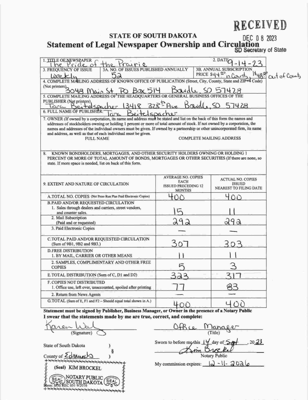 RECEIVED
DEC 08 2023
SD Secretary of State
STATE OF SOUTH DAKOTA
Statement of Legal Newspaper Ownership and Circulation
1. TITLE OF NEWSPAPER
The Pride of the Prairie
2. DATE
9-14-23
3. FREQUENCY OF ISSUE
Weekly
3A. NO. OF ISSUES PUBLISHED ANNUALLY
52
3B. ANNUAL SUBSCRIPTION PRICE
4. COMPLETE MAILING ADDRESS OF KNOWN OFFICE OF PUBLICATION (Street, City, County, State and Zip+4 Code) (Not printers)
3049 Main St PO Box 514 Bowdle, SD 57428
5. COMPLETE MAILING ADDRESS OF THE HEADQUARTERS OR GENERAL BUSINESS OFFICES OF THE PUBLISHER (Not printer)
Bowdle, SD 57428
6. FULL NAME OF PUBLISHER:
Tara Beitelspacher
7. OWNER (If owned by a corporation, its name and address must be stated and also on the back of this form the names and addresses of stockholders owning or holding 1 percent or more of total amount of stock. If not owned by a corporation, the names and addresses of the individual owners must be given. If owned by a partnership or other unincorporated firm, its name and address, as well as that of each individual must be given.
FULL NAME COMPLETE MAILING ADDRESS
8. KNOWN BONDHOLDERS, MORTGAGEES, AND OTHER SECURITY HOLDERS OWNING OR HOLDING 1 PERCENT OR MORE OF TOTAL AMOUNT OF BONDS, MORTGAGES OR OTHER SECURITIES (If there are none, so state. If more space is needed, list on back of this form.
9. EXTENT AND NATURE OF CIRCULATION
AVERAGE NO. COPIES EACH ISSUED PRECEEDING 12 MONTHS
ACTUAL NO. COPIES ISSUED NEAREST TO FILING DATE
A. TOTAL NO. COPIES
400 400
B. PAID AND/OR REQUESTED CIRCULATION
1. Sales through dealers and carriers, street vendors, and counter sales.
15 11
2. Mail Subscription (Paid and or requested)
292 292
3. Paid Electronic Copies
C. TOTAL PAID AND/OR REQUESTED CIRCULATION (Sum of 9B1, 9B2 and 9B3.)
307 303
D. FREE DISTRIBUTION
1. BY MAIL, CARRIER OR OTHER MEANS
11 11
2. SAMPLES, COMPLIMENTARY AND OTHER FREE COPIES
5 3
E. TOTAL DISTRIBUTION (Sum of C, D1 and D2)
323 317
F. COPIES NOT DISTRIBUTED
1. Office use, left over, unaccounted, spoiled after printing
77 83
2. Return from News Agents
G. TOTAL (Sum of E, F1 and F2 - Should equal total shown in A)
400 400
Statement must be signed by Publisher, Business Manager, or Owner in the presence of a Notary Public
I swear that the statements made by me are true, correct, and complete:
Office Manager
(Signature) (Title)
State of South Dakota )
County of Edmunds )
Sworn to before me this 14 day of Sept 2023
Kim Brockel
Notary Public
(Seal) KIM BROCKEL
NOTARY PUBLIC
SOUTH DAKOTA
SEAL
My commission expires: 12-11-2026